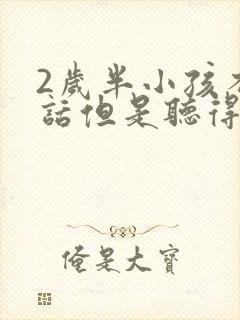 2歲半小孩
話但是聽得
俺是大寶